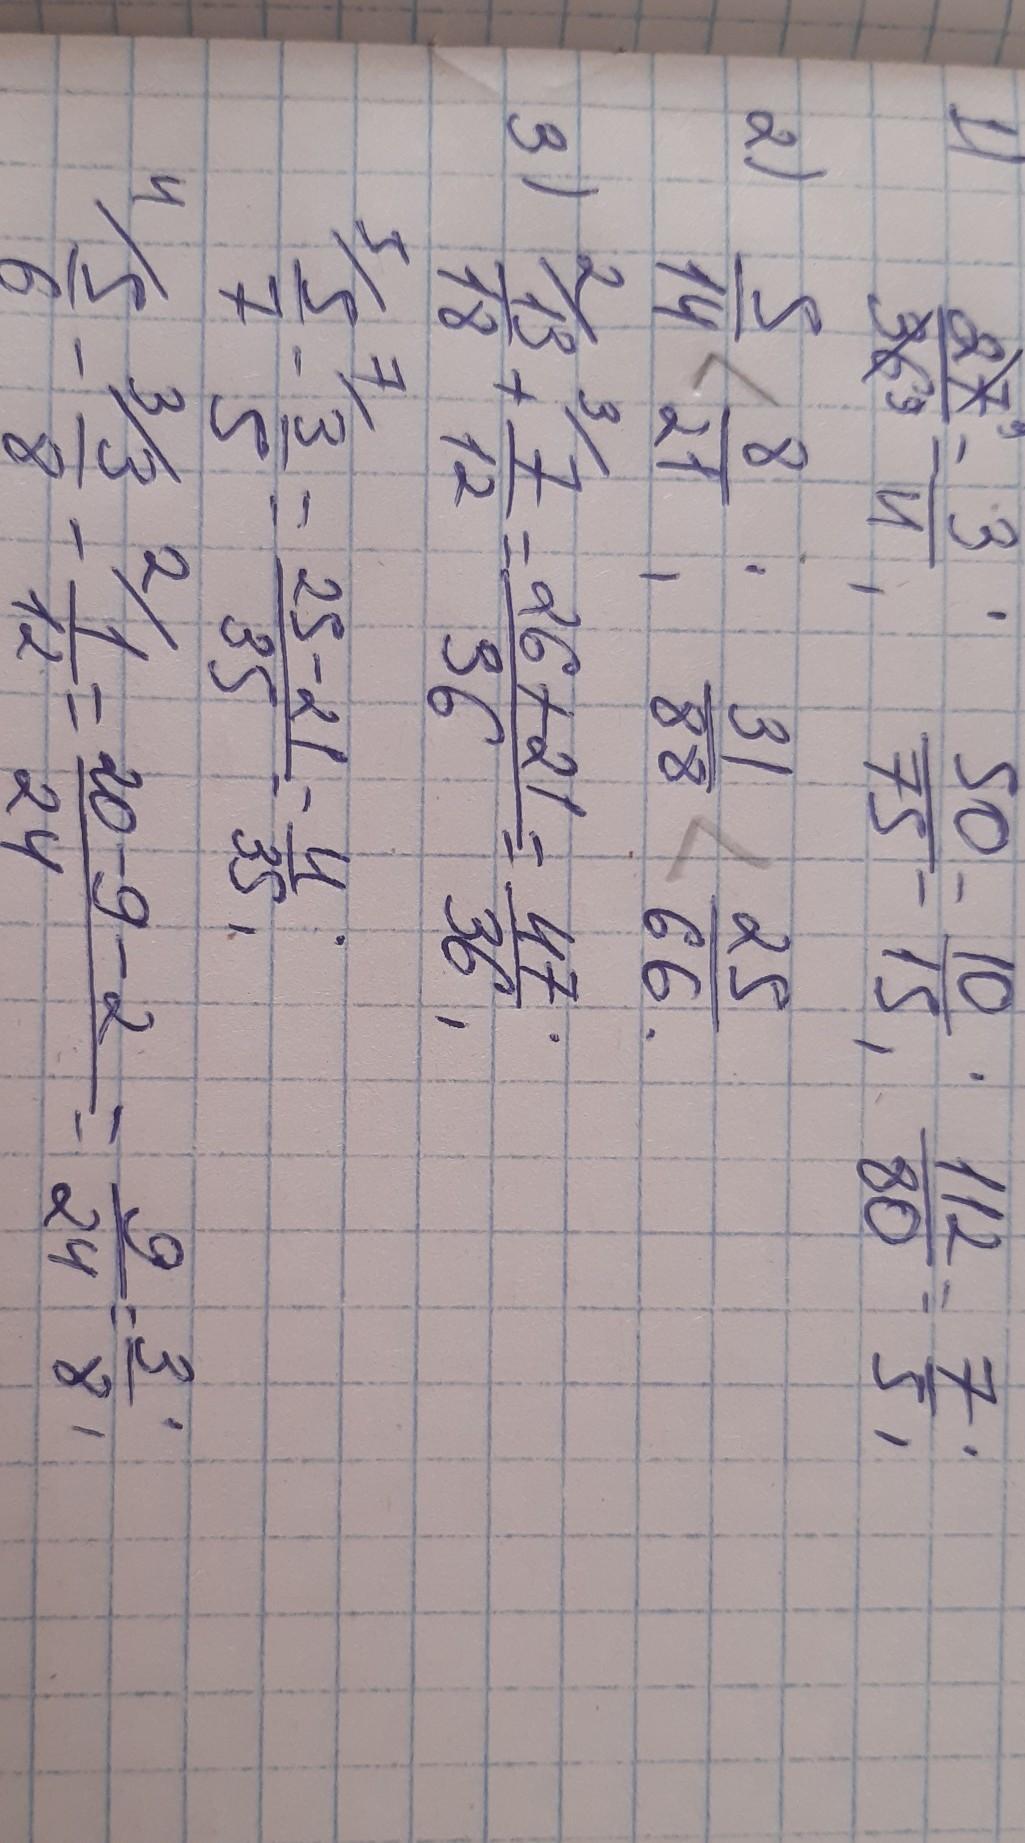 1) 27/36 = 3/4; 50/75 = 10/15; 112/80 = 7/5;
2) 5/14 < 8/21; 31/88 < 25/66.
3) 13/18 + 7/12 = 26+21/36 = 47/36;
5/7 - 3/5 = 25-21/35 = 4/35;
5/6 - 3/8 - 1/12 = 20-9-2/24 = 9/24 = 3/8;